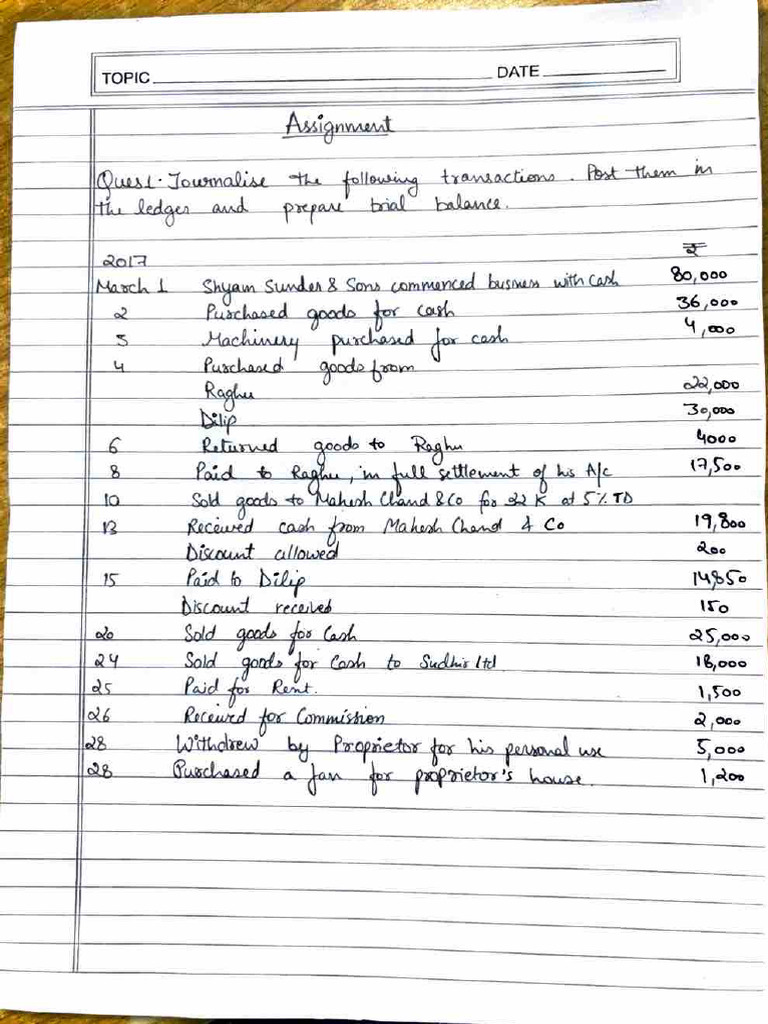 TOPIC DATE
Assignment
Ques1. Journalise the following transactions. Post them in
the ledger and prepare trial balance.
2017 ₹
March 1 Shyam Sunder & Sons commenced business with cash 80,000
2 Purchased goods for cash 36,000
3 Machinery purchased for cash 4,000
4 Purchased goods from
Raghu 22,000
Dilip 30,000
6 Returned goods to Raghu 4000
8 Paid to Raghu, in full settlement of his A/c 17,500
10 Sold goods to Mahesh Chand & Co for 32 K at 5% TD
13 Received cash from Mahesh Chand & Co 19,800
Discount allowed 200
15 Paid to Dilip 14,850
Discount received 150
20 Sold goods for Cash 25,000
24 Sold goods for Cash to Sudhir ltd. 18,000
25 Paid for Rent. 1,500
26 Received for Commission 2,000
28 Withdrew by Proprietor for his personal use 5,000
28 Purchased a fan for proprietor's house. 1,200